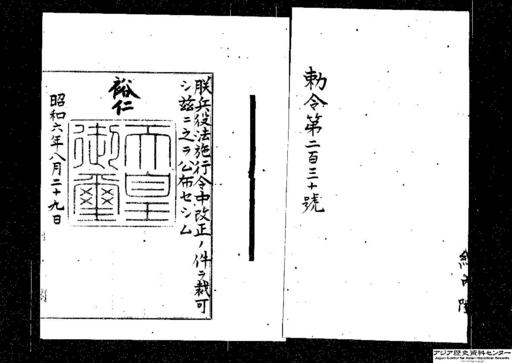 勅令第二百三十號
朕兵役法施行令中改正ノ件ヲ裁可
シ玆ニ之ヲ公布セシム
裕仁
天皇
御璽
昭和六年八月二十九日
アジア歴史資料センター
Japan Center for Asian Historical Records